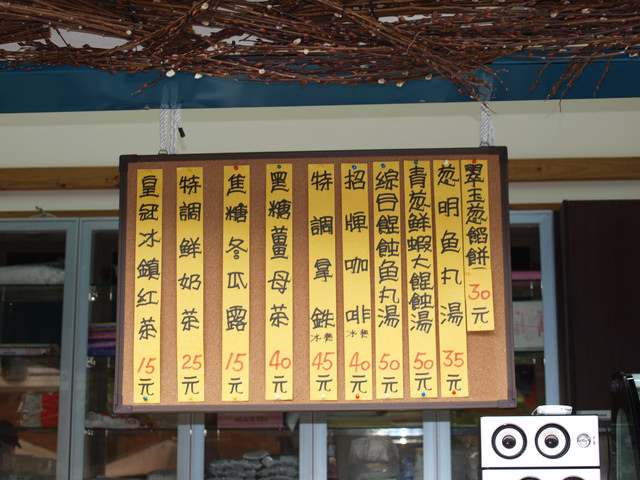 翠玉蔥餡餅 30元
蔥明魚丸湯 35元
青蔥鮮蝦大餛蝕湯 50元
綜合餛蝕魚丸湯 50元
招牌咖啡 冰熱 40元
特調拿鉄 冰熱 45元
黑糖薑母茶 40元
焦糖冬瓜露 15元
特調鮮奶茶 25元
皇冠冰鎮紅茶 15元